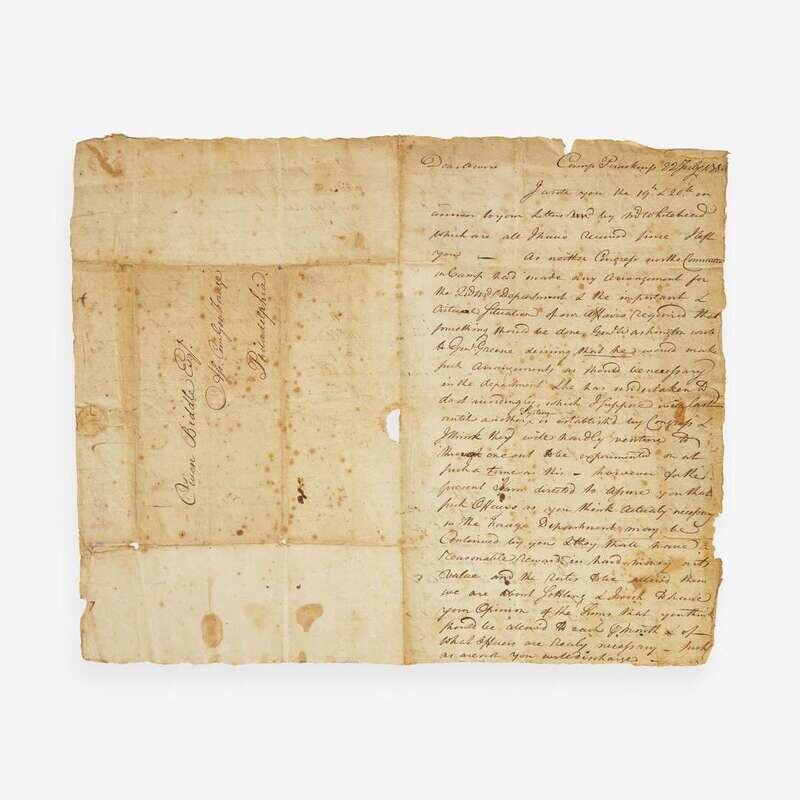 Owen Biddle Esqr.
Philadelphia
Dear Owen Camp
I wrote you the 19th & 20th in
answer to your Letters by Mr Whitehead
which are all I have received since I left
you — As neither Congress nor the Committee
in Camp had made any Arrangement for
the Department & the important &
Critical Situation of our Affairs required that
something should be done, Genl Washington wrote
to Genl Greene desiring that he would make
such Arrangements as should be necessary
in the department & he has undertaken to
do it accordingly, which I suppose will last
until another System is established by Congress &
I think they will hardly venture to
through one out to be experimented on at
such a time as this — however for the
present I am directed to assure you that
such Officers as you think Actually necessary
in the Forage Department may be
Continued by you & they shall have a
reasonable reward in hard money or its
value and the Rates to be allowed them
we are about settling & I wish to have
your Opinion of the Sums that you think
should be allowed to each Month & of
what Officers are realy necessary — such
as are not you will discharge —